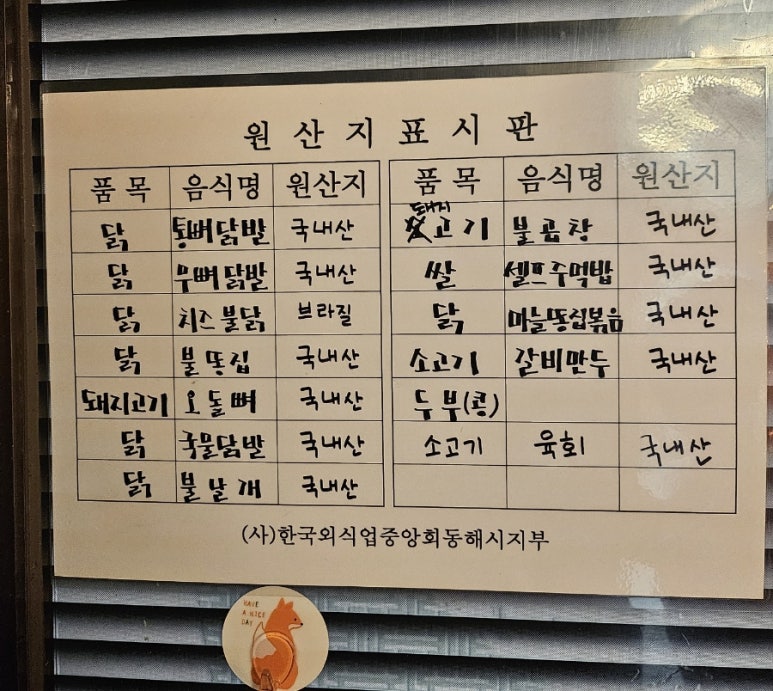 원산지표시판
품목 음식명 원산지 품목 음식명 원산지
닭 통뼈닭발 국내산 돼지고기 불곱창 국내산
닭 무뼈닭발 국내산 쌀 셀프주먹밥 국내산
닭 치즈불닭 브라질 닭 마늘똥집볶음 국내산
닭 불똥집 국내산 소고기 갈비만두 국내산
돼지고기 오돌뼈 국내산 두부(콩)
닭 국물닭발 국내산 소고기 육회 국내산
닭 불날개 국내산
(사)한국외식업중앙회동해시지부
HAVE
A NICE
DAY